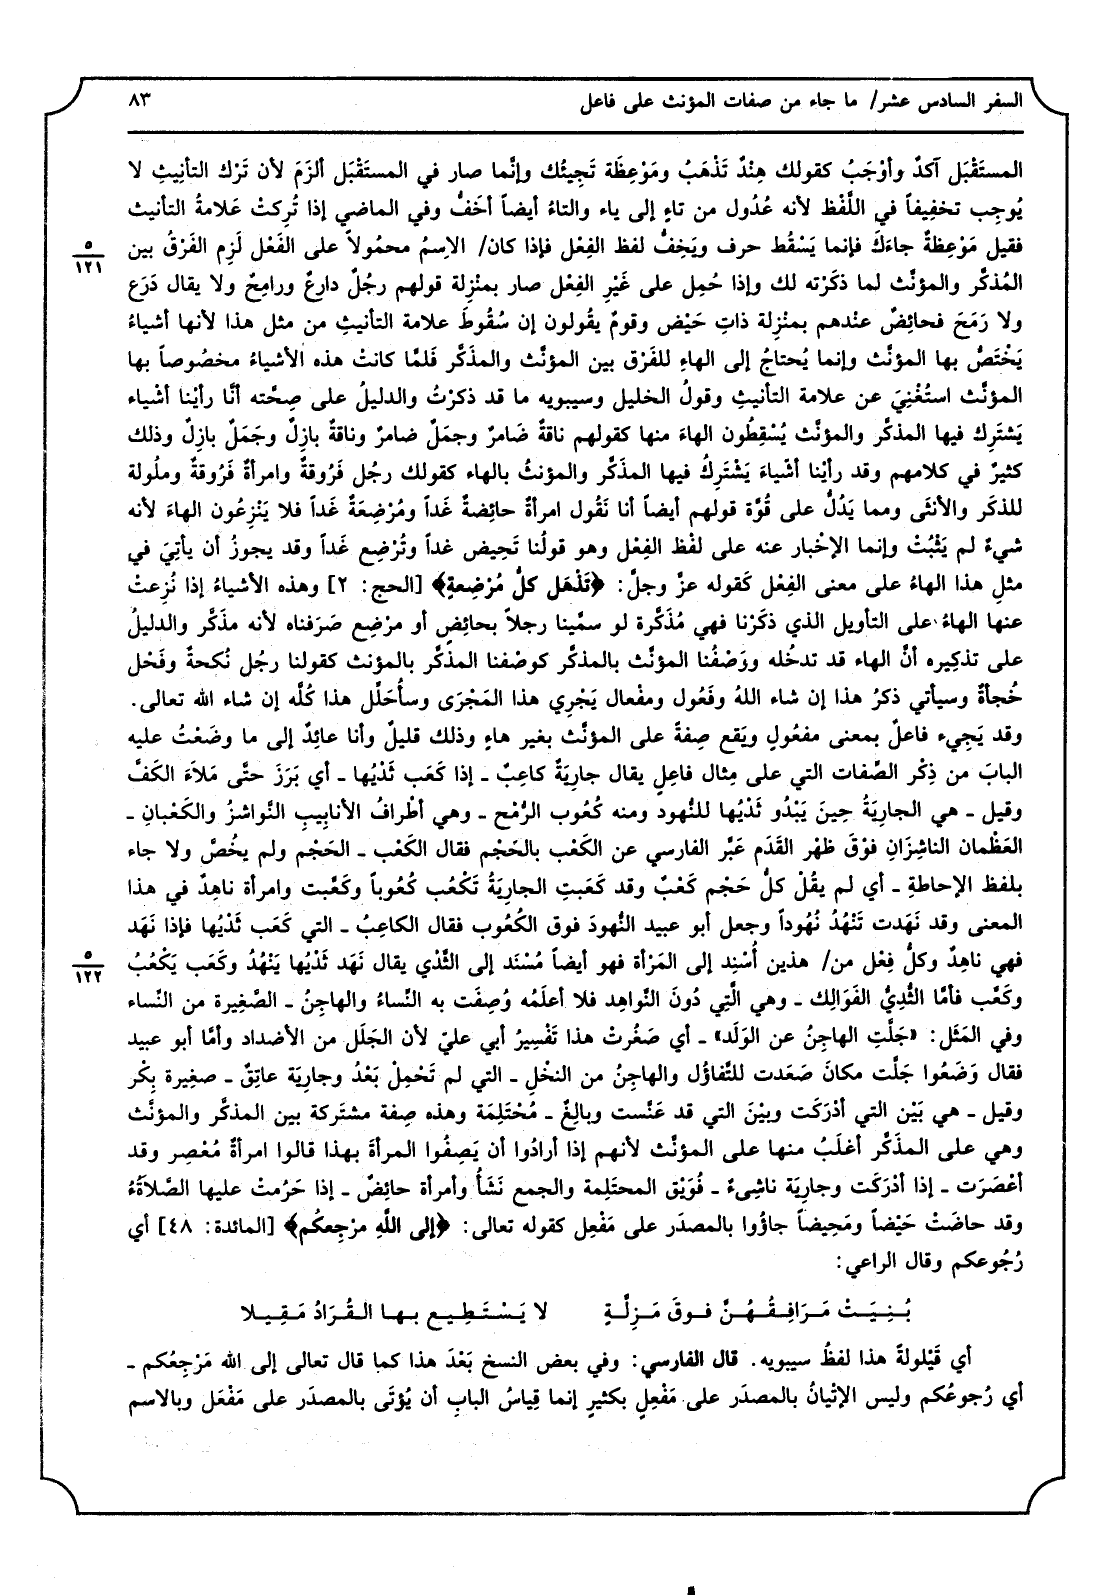 السفر السادس عشر/ ما جاء من صفات المؤنث على فاعل
٨٣
المستَقْبَل آكدٌ وأوْجَبُ كقولك هِنْدٌ تَذْهَبُ ومَوْعِظَة تَجِيئُك وإنَّما صار في المستَقْبَل ألزَمَ لأن تَرْك التأنِيثِ لا
يُوجِب تخفِيفاً في اللَّفْظ لأنه عُدُول من تاءٍ إلى ياء والتاءُ أيضاً أخَفُّ وفي الماضي إذا تُرِكتْ عَلامةُ التأنيث
فقيل مَوْعِظةٌ جاءَكَ فإنما يَسْقُط حرف ويَخِفُّ لفظ الفِعْل فإذا كان/ الاِسمُ محمُولاً على الفَعْل لَزِم الفَرْقُ بين
٥
١٢١
المُذكَّر والمؤنَّث لما ذكَرْته لك وإذا حُمِل على غَيْرِ الفِعْل صار بمنْزِلة قولهم رجُلٌ دارعٌ ورامِحٌ ولا يقال دَرَع
ولا رَمَحَ فحائِضٌ عنْدهم بمنْزِلة ذاتِ حَيْض وقومٌ يقُولون إن سُقُوطَ علامة التأنيثِ من مثل هذا لأنها أشياءُ
يَخْتَصُّ بها المؤنَّث وإنما يُحتاجُ إلى الهاءِ للفَرْق بين المؤنَّث والمذَكَّر فَلمَّا كانتْ هذه الأشياءُ مخصُوصاً بها
المؤنَّث استُغْنِيَ عن علامة التأنيثِ وقولُ الخليل وسيبويه ما قد ذكرْتُ والدليلُ على صِحَّته أنَّا رأيْنا أشْياء
يَشْتَرِك فيها المذكَّر والمؤنَّث يُسْقِطُون الهاءَ منها كقولهم ناقةٌ ضَامرٌ وجمَلٌ ضامرٌ وناقةٌ بازِلٌ وجَمَلٌ بازِلٌ وذلك
كثيرٌ في كلامهم وقد رأيْنا أشْياءَ يَشْتَرِكُ فيها المذَكَّر والمؤنثُ بالهاء كقولك رجُل فَرُوقةٌ وامرأةٌ فَرُوقةٌ وملُولة
للذكَر والأنثَى ومما يَدُلُّ على قُوَّة قولهم أيضاً أنا نَقُول امرأةٌ حائِضةٌ غَداً ومُرْضِعَةٌ غَداً فلا يَنْزِعُون الهاءَ لأنه
شيءٌ لم يَثْبُتْ وإنما الإخْبار عنه على لفْظ الفِعْل وهو قولُنا تَحِيض غداً وتُرْضِع غَداً وقد يجوزُ أن يأتِيَ في
مثلِ هذا الهاءُ على معنى الفِعْل كَقوله عزَّ وجلَّ: ﴿تَذْهَل كلُّ مُرْضِعةٍ﴾ [الحج: ٢] وهذه الأشياءُ إذا نُزِعتْ
عنها الهاءُ على التأويل الذي ذكَرْنا فهي مُذَكَّرة لو سمَّينا رجلاً بحائِضٍ أو مرْضِع صَرَفناه لأنه مذكَّر والدليلُ
على تذكِيره أنَّ الهاء قد تدخُله ووَصْفُنا المؤنَّث بالمذكَّر كوصْفنا المذكَّر بالمؤنث كقولنا رجُل نُكَحةٌ وفَحْل
خُجأةٌ وسيأتي ذكرُ هذا إن شاء اللهُ وفَعُول ومفْعال يَجْرِي هذا المَجْرَى وسأُحَلِّل هذا كُلَّه إن شاء الله تعالى.
وقد يَجِيء فاعلٌ بمعنى مفعُولٍ ويَقع صِفةً على المؤنَّث بغير هاءٍ وذلك قليلٌ وأنا عائِدٌ إلى ما وضَعْتُ عليه
البابَ من ذِكْر الصِّفات التي على مِثال فاعِلٍ يقال جارِيَةٌ كاعِبٌ ـ إذا كَعَب ثَدْيُها ـ أي بَرَزَ حتَّى مَلأَءَ الكَفَّ
وقيل ـ هي الجارِيَةُ حِينَ يَبْدُو ثَدْيُها للنُّهود ومنه كُعُوب الرُّمْح ـ وهي أطْرافُ الأنابِيبِ النَّواشزُ والكَعْبانِ ـ
العَظْمان الناشِزَانِ فوْقَ ظهْر القَدَم عَبَّر الفارسي عن الكَعْب بالحَجْم فقال الكَعْب ـ الحَجْم ولم يخُصَّ ولا جاء
بلفظ الإحاطةِ ـ أي لم يقُلْ كلُّ حَجْم كَعْبٌ وقد كَعَبتِ الجارِيَةُ تَكْعُب كُعُوباً وكَعَّبت وامرأة ناهِدٌ في هذا
المعنى وقد نَهَدت تَنْهُدُ نُهُوداً وجعل أبو عبيد النُّهودَ فوق الكُعُوب فقال الكاعِبُ ـ التي كَعَب ثَدْيُها فإذا نَهَد
فهي ناهِدٌ وكلُّ فِعْل من/ هذين أُسْنِد إلى المَرْأة فهو أيضاً مُسْنَد إلى الثَّدْي يقال نَهَد ثَدْيُها يَنْهُدُ وكَعَب يَكْعُبُ
٥
١٢٢
وكَعَّب فأمَّا الثُّدِيُّ الفَوَالِك ـ وهي الَّتِي دُونَ النَّواهِد فلا أعلَمُه وُصِفَت به النِّساءُ والهاجِنُ ـ الصَّغِيرة من النِّساء
وفي المَثَل: «جَلَّتِ الهاجِنُ عن الوَلَد» ـ أي صَغُرتْ هذا تَفْسِيرُ أبي عليّ لأن الجَلَل من الأضداد وأمَّا أبو عبيد
فقال وَضَعُوا جَلَّت مكانَ صَعَدت للتَّفاؤُل والهاجِنُ من النخْلِ ـ التي لم تَحْمِلْ بَعْدُ وجارِيَة عاتِقٌ ـ صغِيرة بِكْر
وقيل ـ هي بَيْن التي أدْرَكَت وبيْنَ التي قد عَنَّست وبالِغٌ ـ مُحْتَلِمَة وهذه صِفة مشتَركة بين المذكَّر والمؤنَّث
وهي على المذَكَّر أغلَبُ منها على المؤنَّث لأنهم إذا أرادُوا أن يَصِفُوا المرأةَ بهذا قالوا امرأةٌ مُعْصِر وقد
أعْصَرَت ـ إذا أدْرَكَت وجارِيَة ناشِىءٌ ـ فُوَيْق المحتَلِمة والجمع نَشَأُ وأمرأة حائِضٌ ـ إذا حَرُمتْ عليها الصَّلاةُ
وقد حاضَتْ حَيْضاً ومَحِيضاً جاؤُوا بالمصدَر على مَفْعِل كقوله تعالى: ﴿إلى اللَّهِ مرْجِعكُم﴾ [المائدة: ٤٨] أي
رُجُوعكم وقال الراعي:
بُنِيَتْ مَرَافِقُهُنَّ فوقَ مَزِلَّةٍ لا يَسْتَطِيع بها القُرَادُ مَقِيلا
أي قَيْلولةً هذا لفظُ سيبويه. قال الفارسي: وفي بعض النسخ بَعْدَ هذا كما قال تعالى إلى الله مَرْجِعُكم ـ
أي رُجوعُكم وليس الإتْيانُ بالمصدَر على مَفْعِلٍ بكثيرٍ إنما قِياسُ البابِ أن يُؤتَى بالمصدَر على مَفْعَل وبالاسم